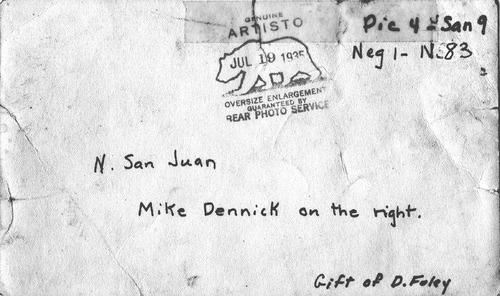 GENUINE
ARTISTO
JUL 19 1935
OVERSIZE ENLARGEMENT
GUARANTEED BY
BEAR PHOTO SERVICE
Pic 4 San 9
Neg 1 - N 83
N. San Juan
Mike Dennick on the right.
Gift of D. Foley